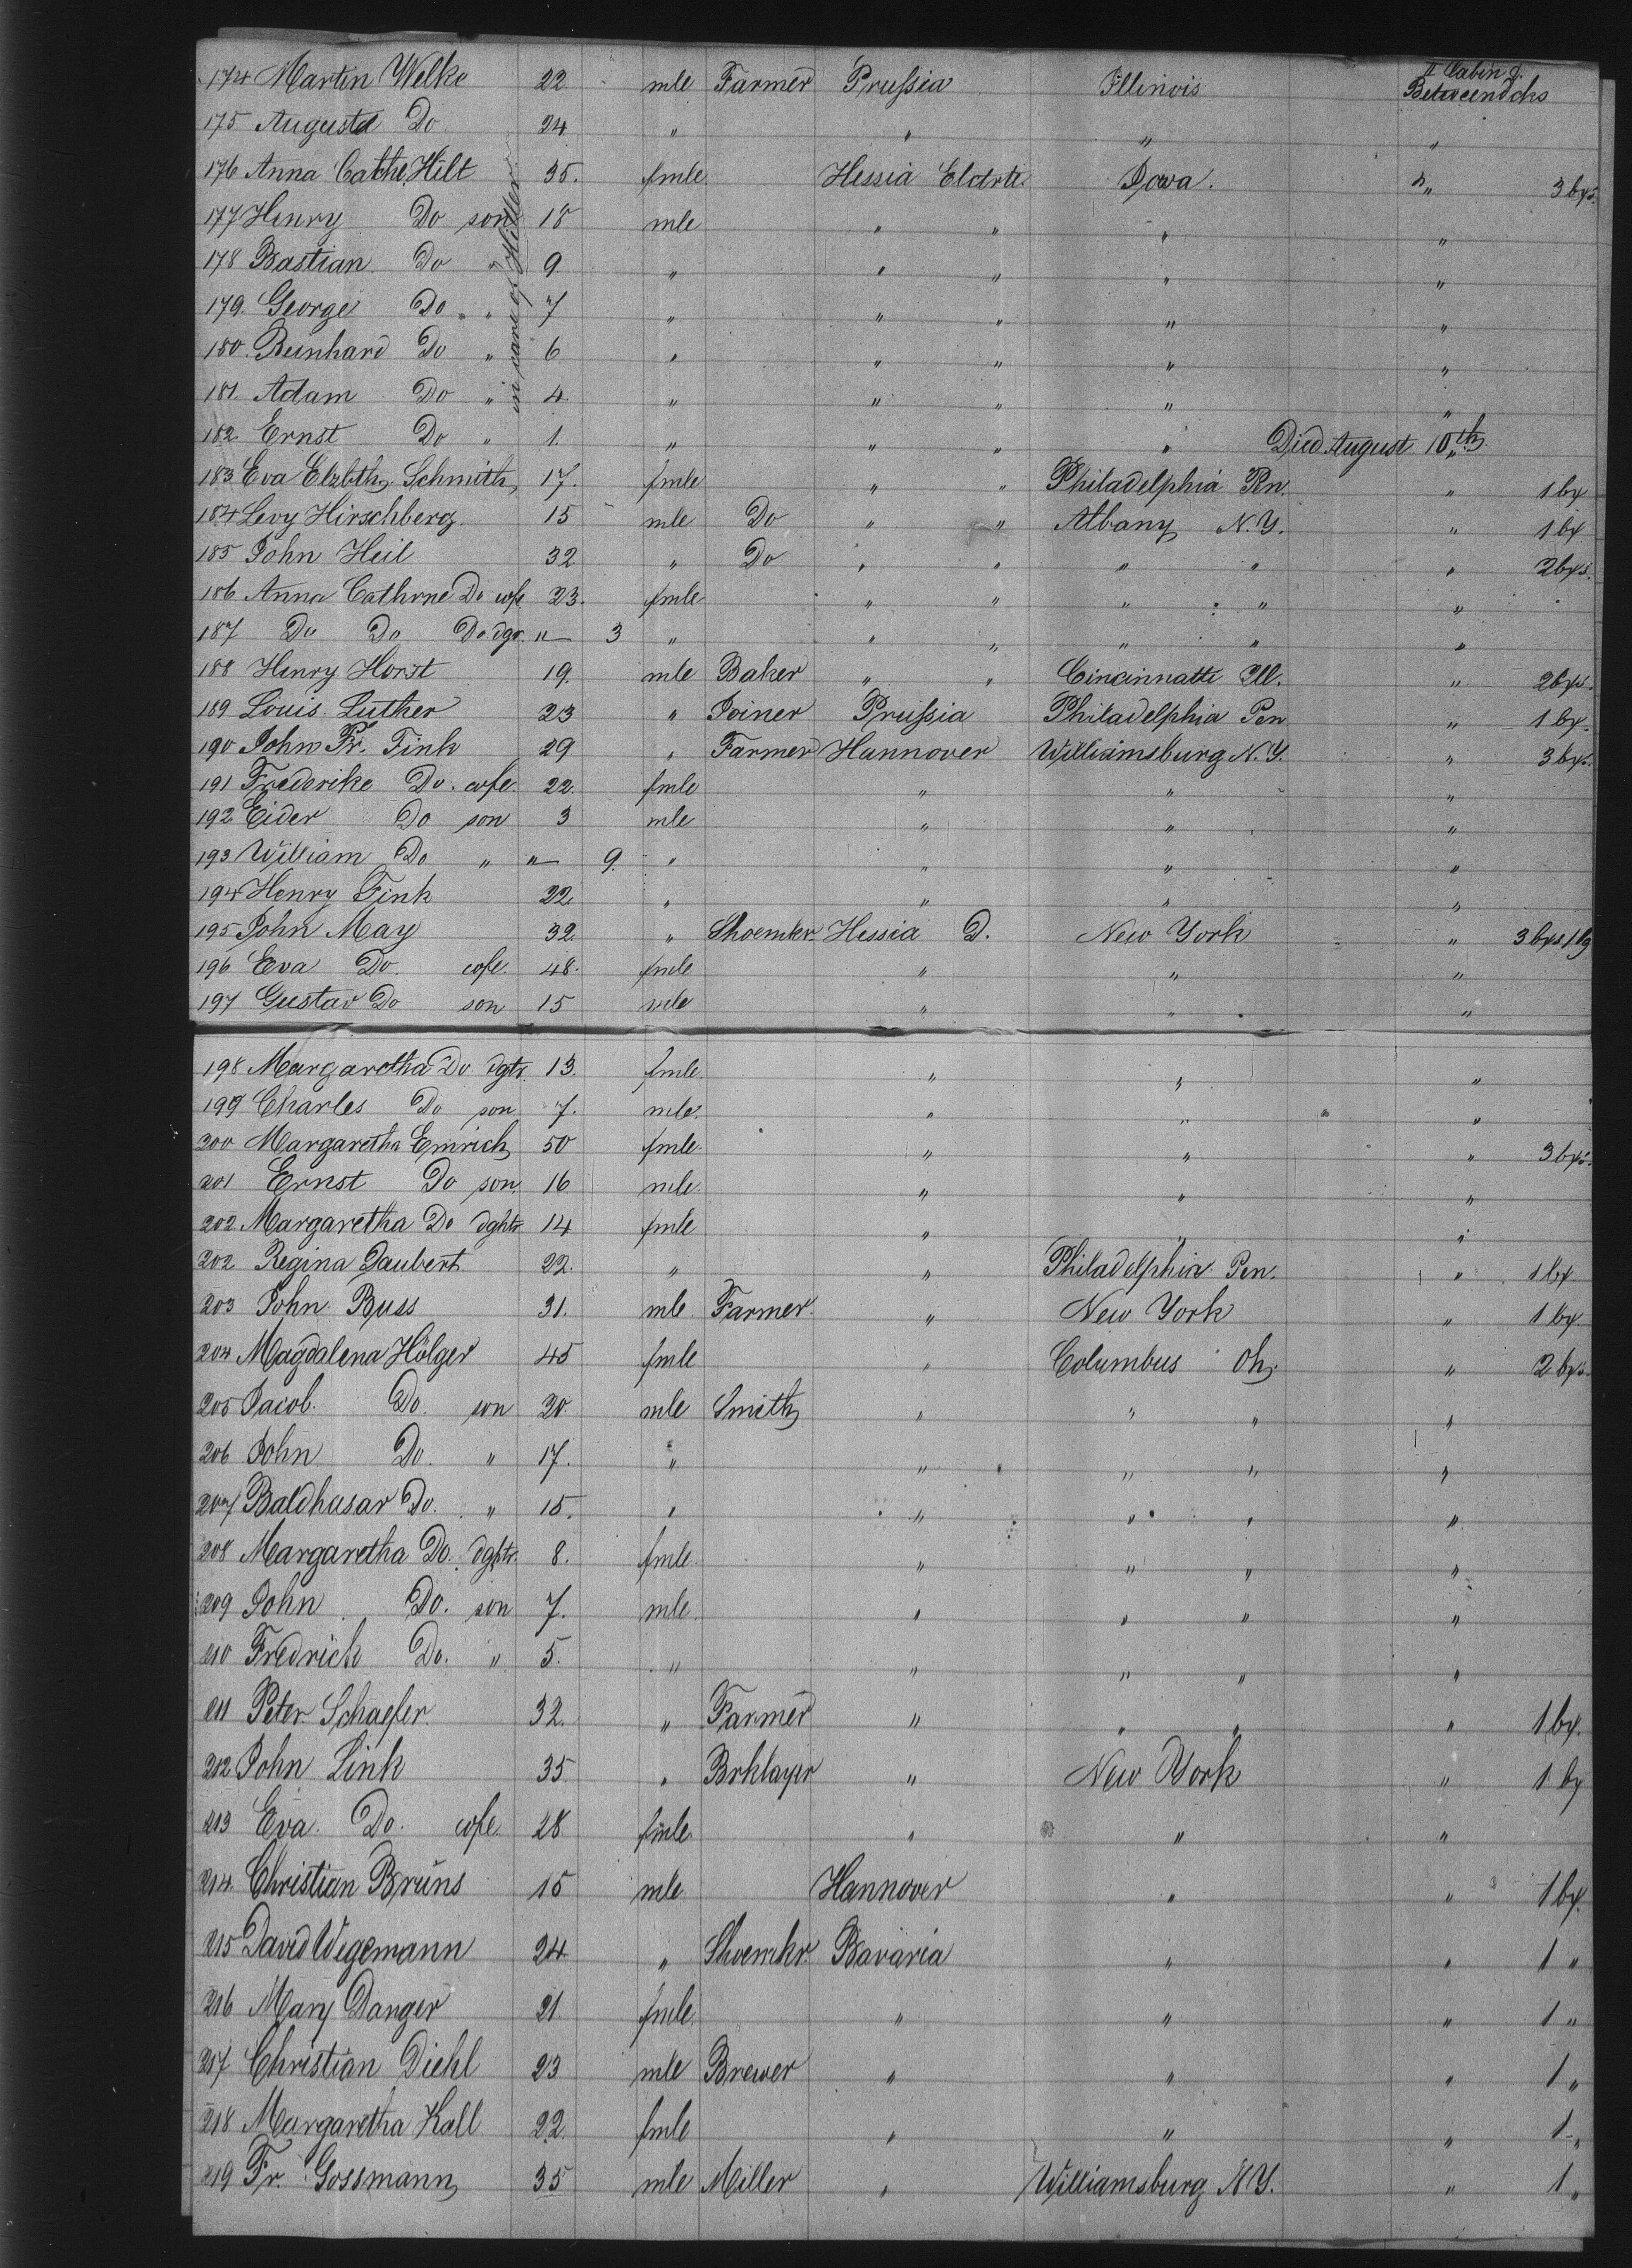 174 Martin Welke 22 mle Farmer Prussia Illinois II Cabin d. Betweendcks
175 Augusta Do 24 " " " "
176 Anna Cathe. Hilt 35. fmle Hessia Eldrtt. Iowa. " 3 bxs.
177 Henry Do son 18 mle " " " "
178 Bastian Do " 9 " " " " "
179. George Do " " 7 " " " " "
180. Reinhard Do " 6 " " " " "
181. Adam Do " 4. " " " " "
in care of Hitler
182. Ernst Do " 1. " " " " Died August 10th.
183 Eva Elzbth. Schmith 17. fmle " " Philadelphia Pen. " 1 bx
184 Levy Hirschberg. 15 mle Do " " Albany N.Y. " 1 bx
185 John Heil 32 " Do " " " " " 2 bxs.
186 Anna Cathrne Do wfe 23. fmle " " " " "
187 Do Do Do dgr. " — 3 " " " " " "
188 Henry Horst 19. mle Baker " " Cincinnatti Ill. " 2 bxs.
189 Louis Luther 23 " Joiner Prussia Philadelphia Pen " 1 bx.
190 John Fr. Fink 29 " Farmer Hannover Williamsburg N.Y. " 3 bxs.
191 Frederike Do. wfe 22. fmle " " "
192 Eider Do son 3 mle " " "
193 William Do " " — 9. " " " "
194 Henry Fink 22 " " " "
195 John May 32 " Shoemkr Hessia D. New York " 3 bxs 1 bg
196 Eva Do. wfe. 48. fmle " " "
197 Gustav Do son 15 mle " " "
198 Margaretha Do dgtr. 13. fmle " " "
199 Charles Do son 7. mle. " " "
200 Margaretha Emrich 50 fmle. " " " 3 bxs.
201 Ernst Do son. 16 mle. " " "
202 Margaretha Do dghtr 14 fmle " " "
202 Regina Daubert 22. " " Philadelphia Pen. " 1 bx
203 John Buss 31. mle Farmer. " New York " 1 bx
204 Magdalena Hölger 45 fmle " Columbus Oh. " 2 bxs.
205 Jacob. Do. son 20. mle Smith " " " "
206 John Do. " 17. " " " " "
207 Baldhasar Do. " 15. " " " " "
208 Margaretha Do. dghtr. 8. fmle " " " "
209 John Do. son 7. mle " " " "
210 Fredrich Do. " 5. " " " " "
211 Peter Schaefer. 32. " Farmer " " " " 1 bx.
212 John Link 35 " Brklayer " New York " 1 bx
213 Eva Do. wfe. 28 fmle " " "
214. Christian Brüns 15 mle Hannover " " 1 bx.
215 David Wegemann 24 " Shoemkr. Bavaria " " 1 "
216 Mary Danger 21. fmle. " " " 1 "
217 Christian Diehl 23 mle Brewer " " " 1 "
218 Margaretha Kall 22. fmle " " " 1 "
219 Fr. Gossmann 35 mle Miller " Williamsburg N.Y. " 1 "